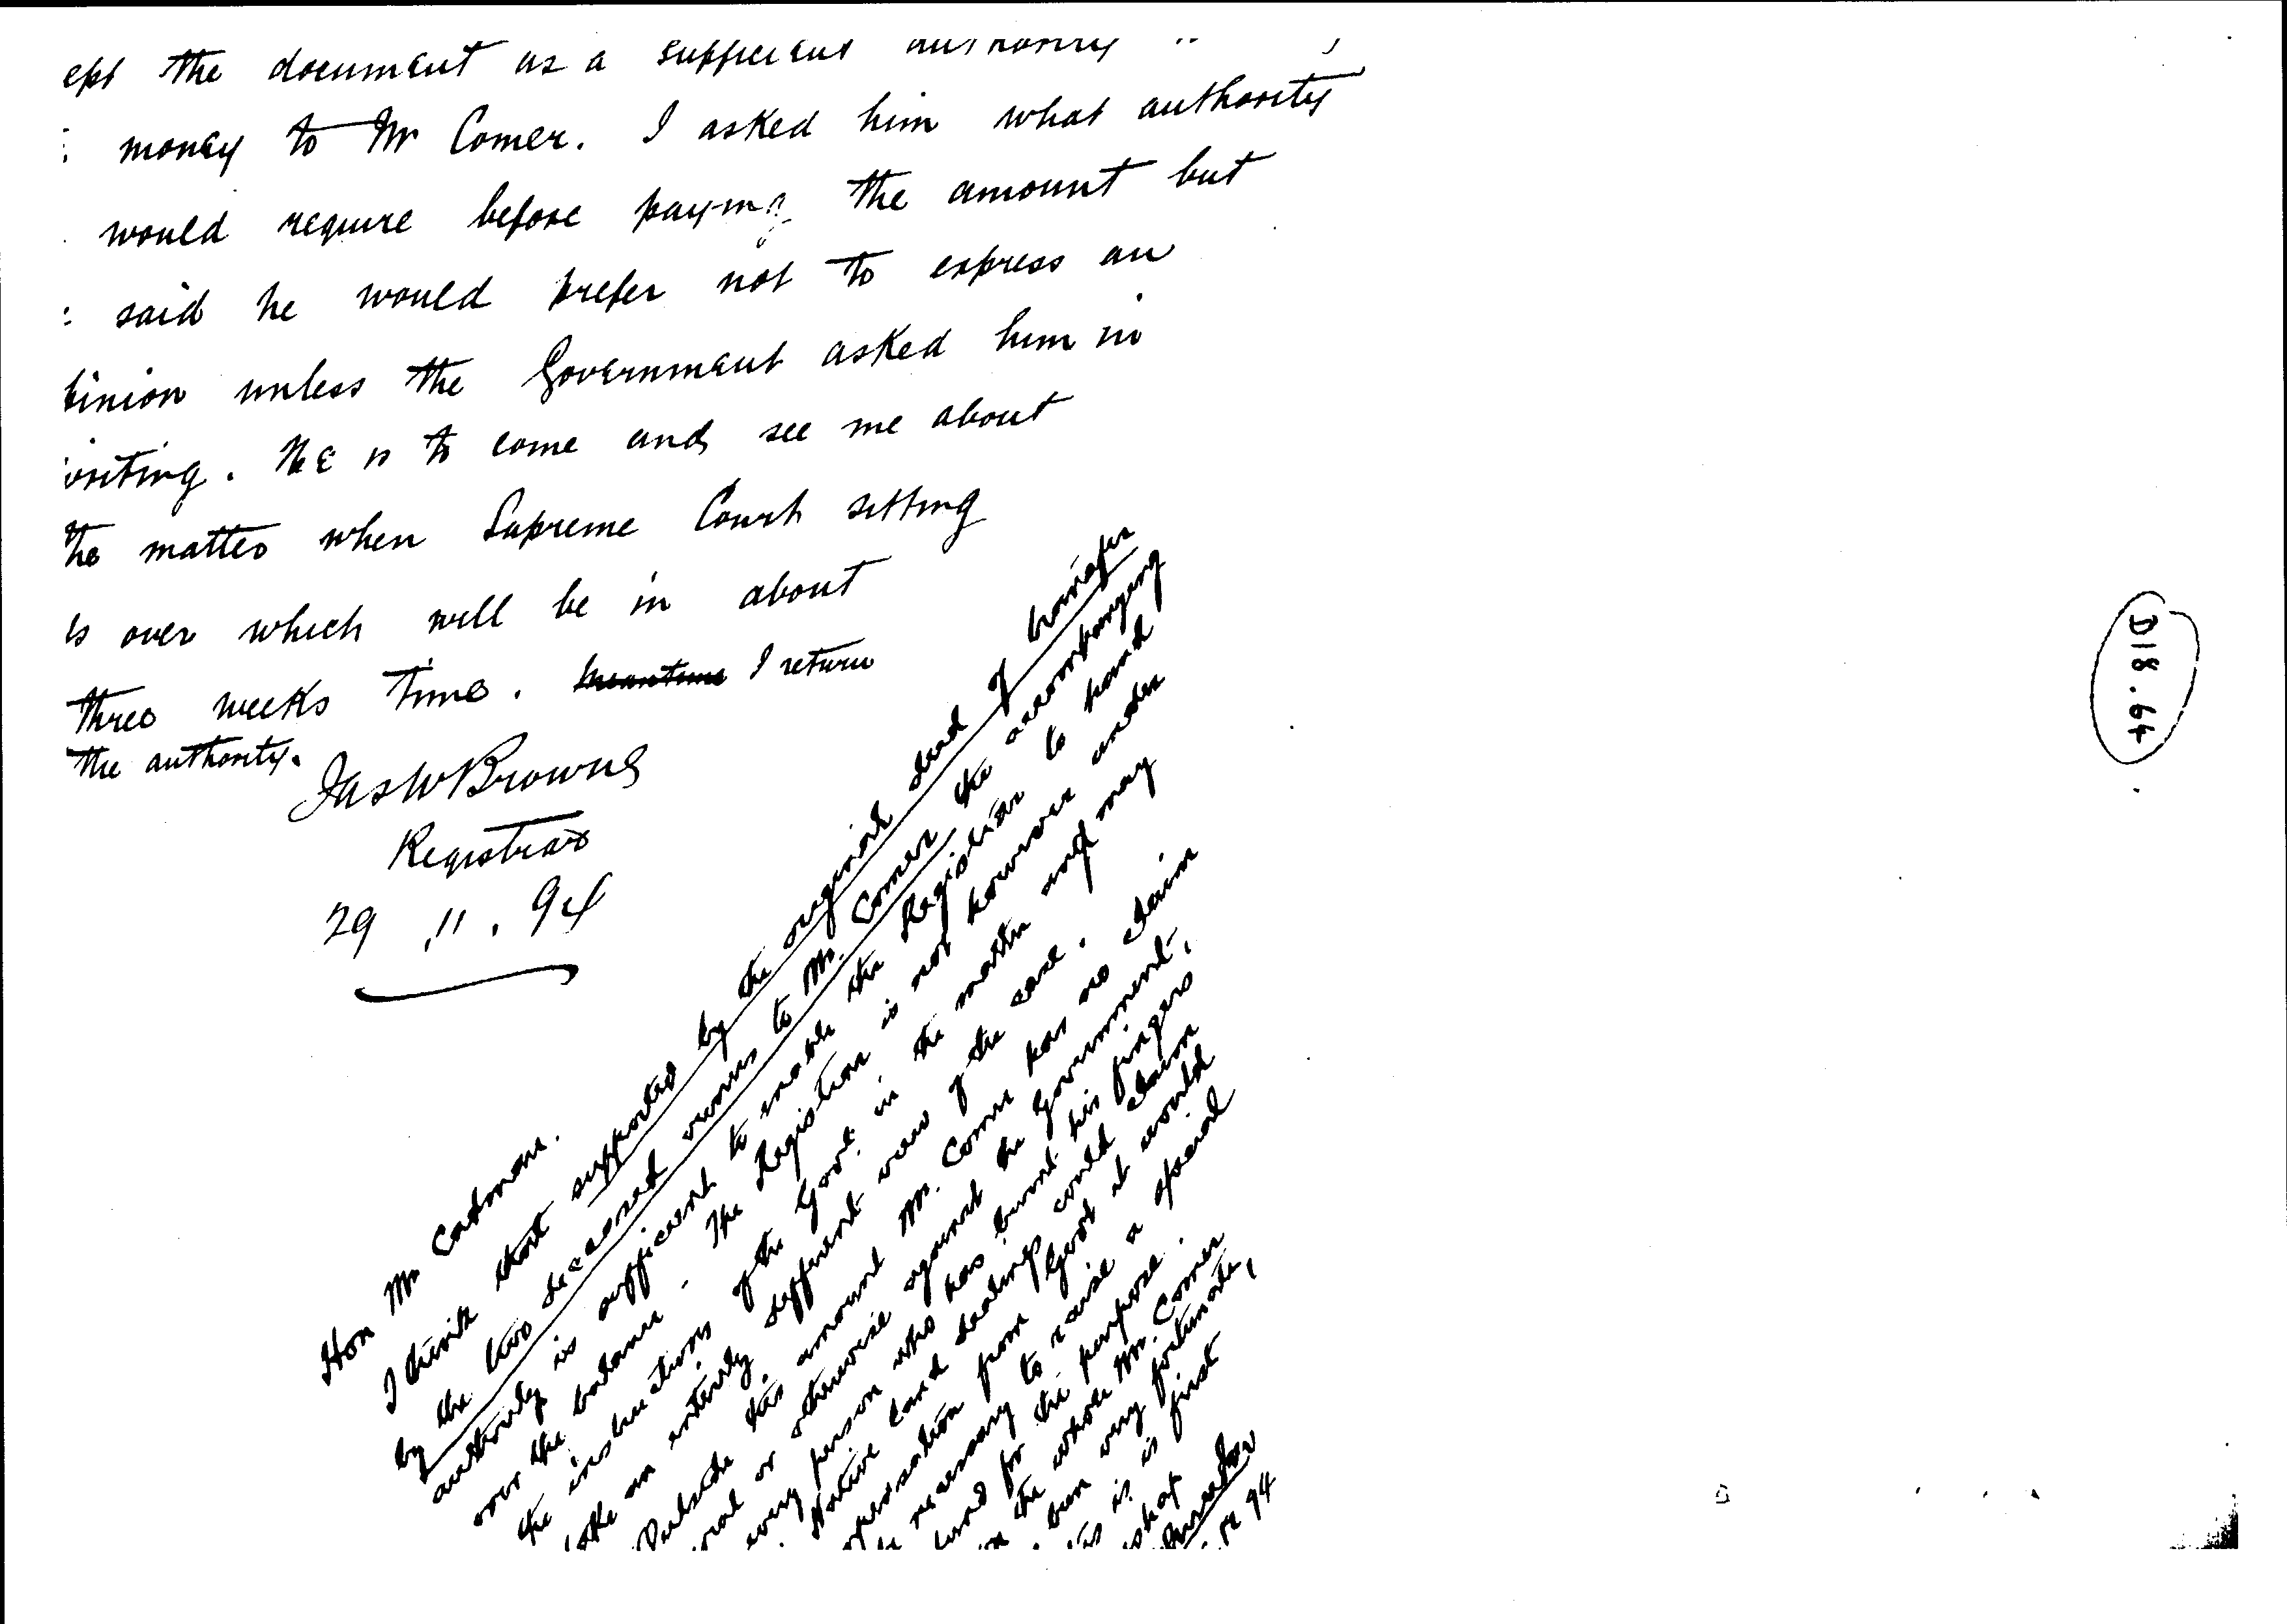 ept the document as a sufficient authority
money to Mr Comer. I asked him what authority
would require before paying the amount but
said he would prefer not to express an
pinion unless the Government asked him in
writing. He is to come and see me about
the matter when Supreme Court sitting
is over which will be in about
three weeks time. Meantime I return
the authority.
Jas W Browne
Registrar
29 . 11 . 94
Hon Mr Cadman.
I think that supported by the original deed of transfer
by the two deceased owners to Mr. Comer the accompanying
authority is sufficient to enable the Registrar to hand
over the balance. The Registrar is not however under
the instructions of the Govt. in the matter and may
take an entirely different view of the case.
Outside this amount Mr. Comer has no claim
or otherwise against the Government,
every person who has burnt his fingers
Native Land dealings could claim
compensation from Govt it would
be necessary to raise a special
fund for the purpose.
the whole Mr. Comer
been very fortunate,
is is first
94
D18.64